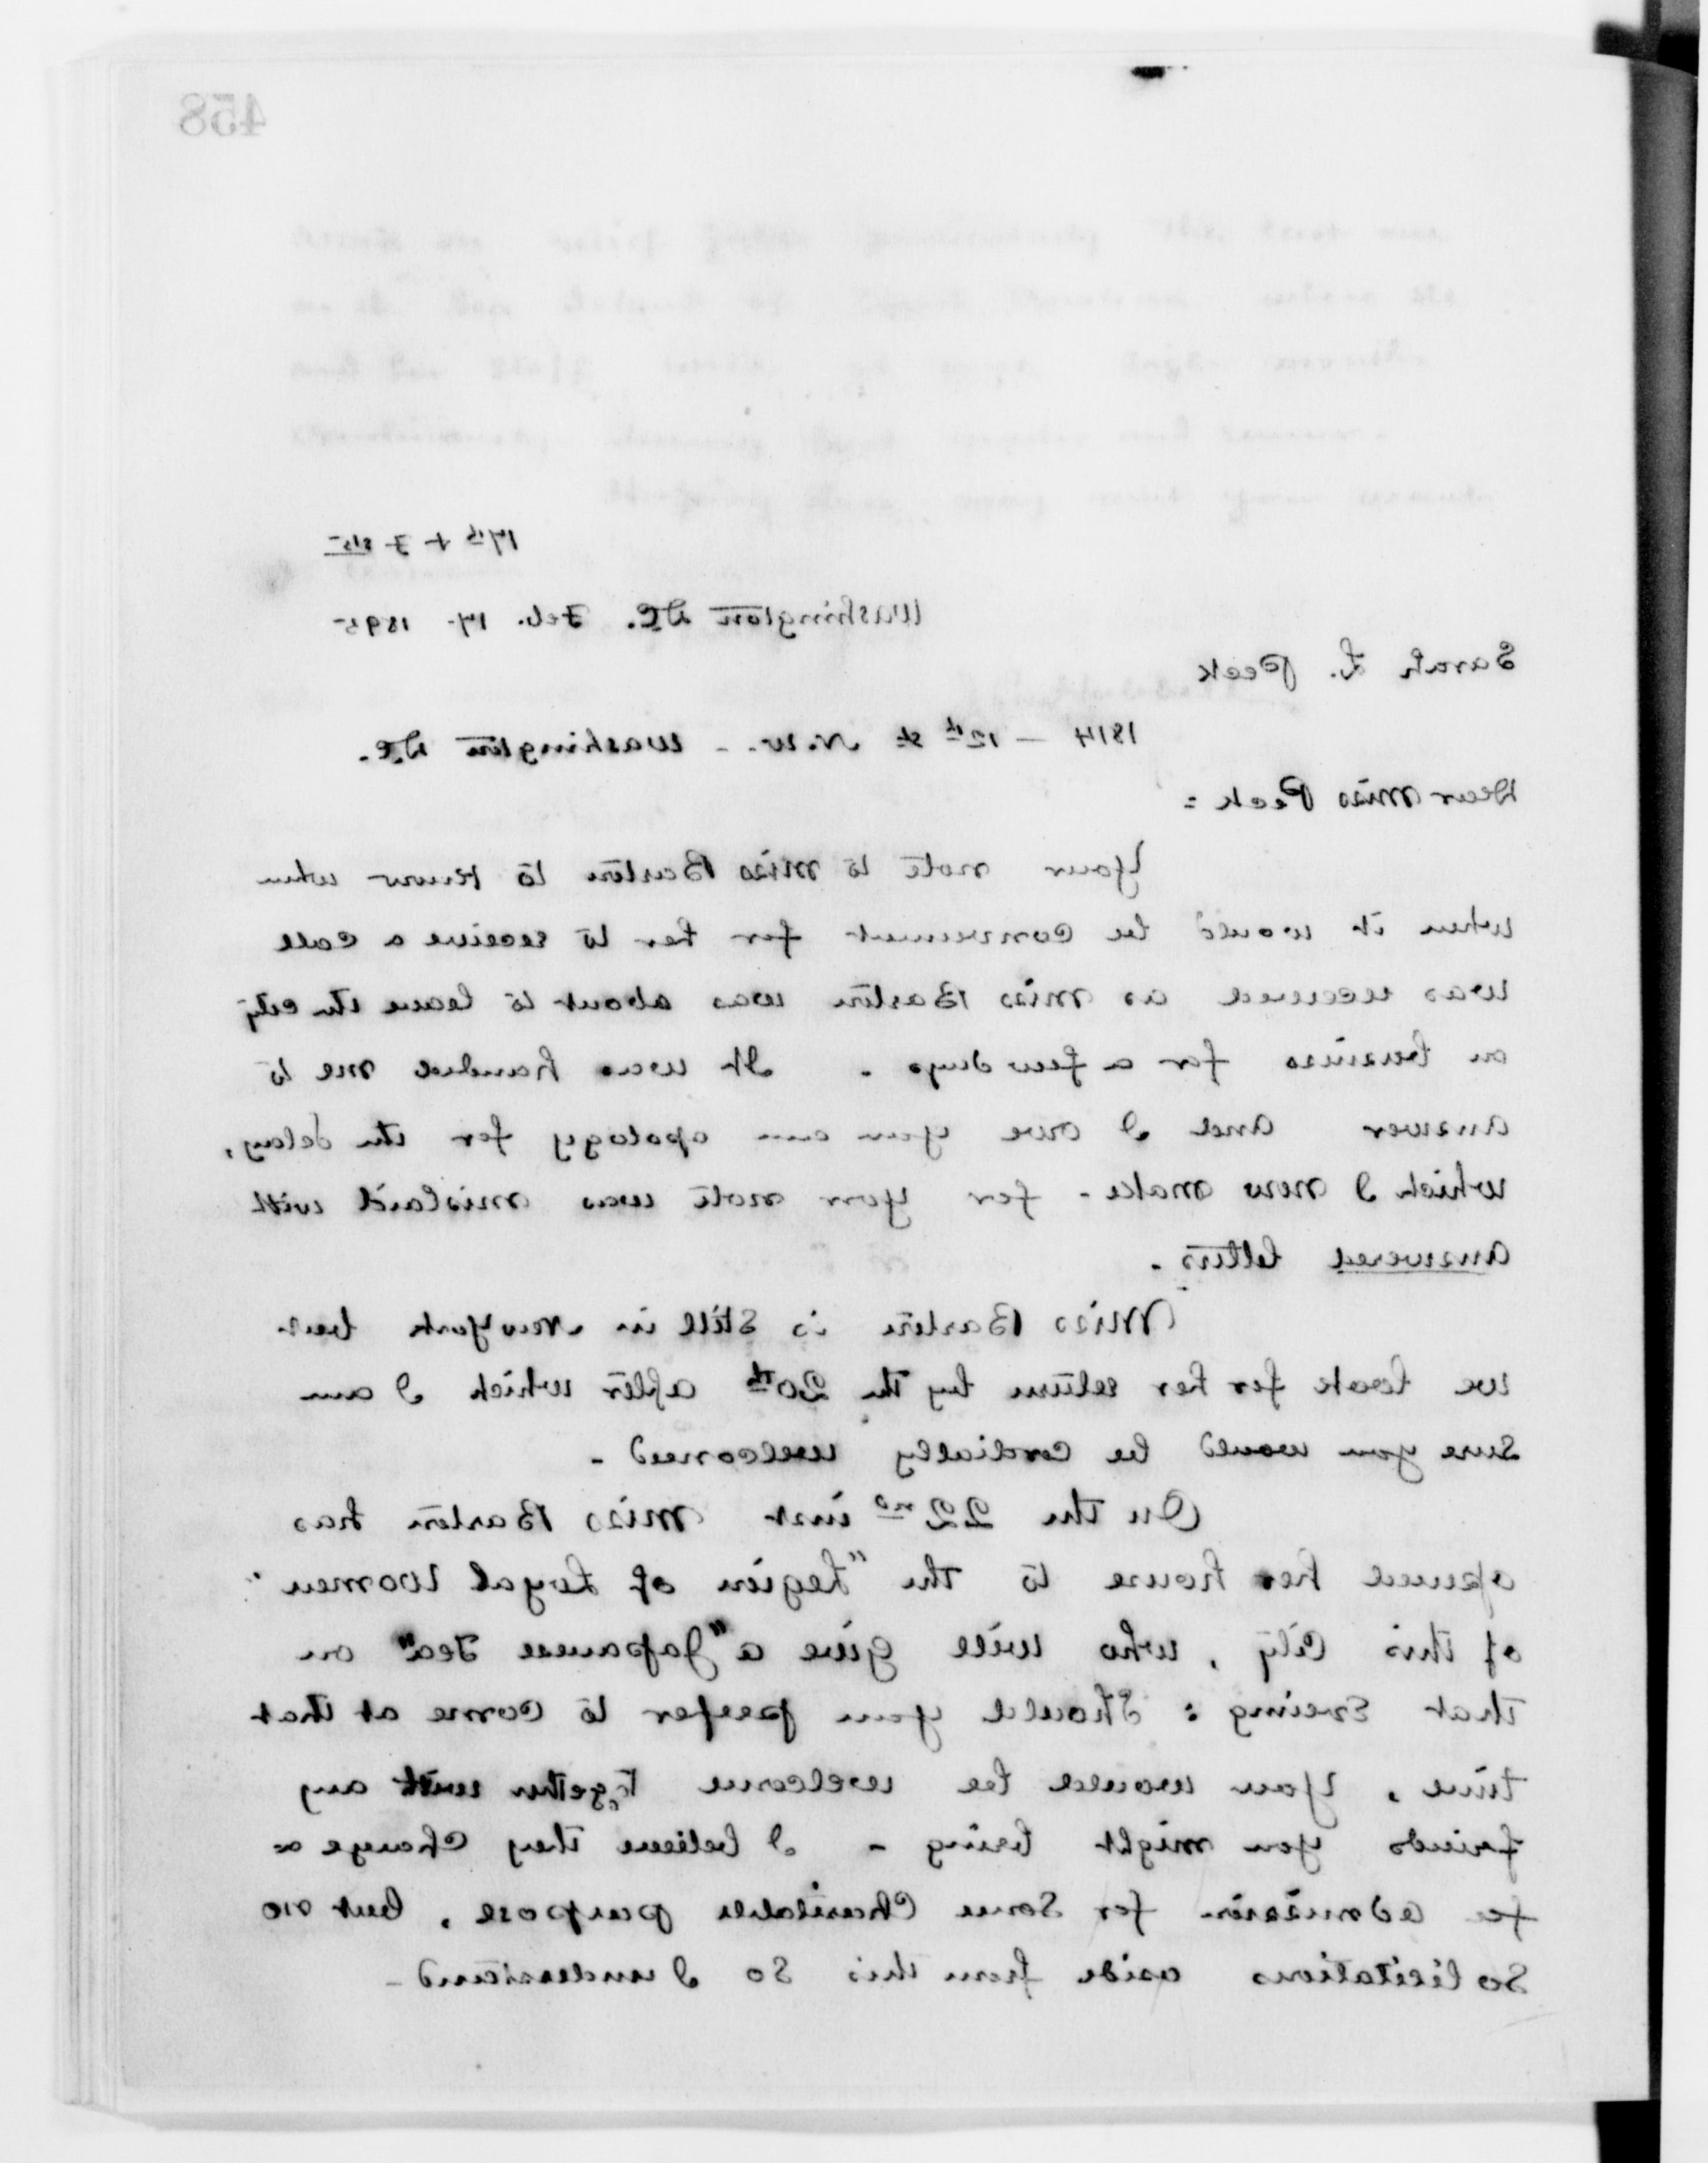 458
17th & F sts
Washington D.C. Feb. 17 1895
Sarah L. Peck
1814 - 12th st N.W. - Washington D.C.
Dear Miss Peck:
Your note to Miss Barton to know when
when it would be convenient for her to receive a call
was received as Miss Barton was about to leave the city
on business for a few days. It was handed me to
answer and I owe you an apology for the delay,
which I now make - for your note was mislaid with
answered letters.
Miss Barton is still in New York but
we look for her return by the 20th after which I am
sure you would be cordially welcomed -
On the 22nd inst Miss Barton has
opened her house to the "Legion of Loyal Women"
of this City, who will give a "Japanese Tea" on
that evening: should you prefer to come at that
time, you would be welcome together with any
friends you might bring - I believe they charge a
fee admission for some charitable purpose, but no
solicitations aside from this so I understand -